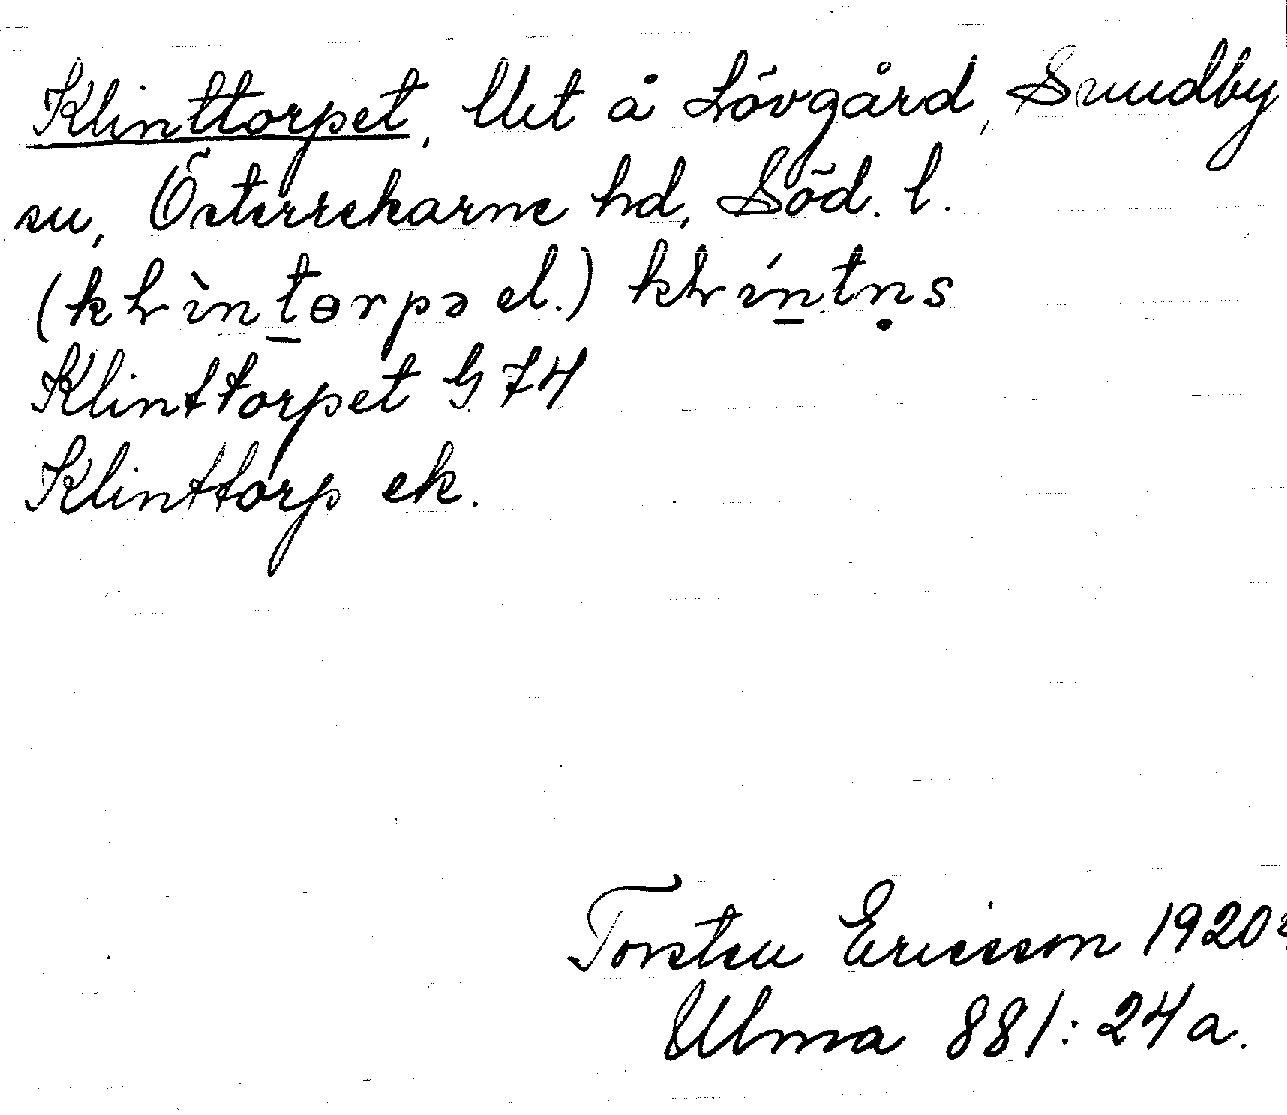 Klinttorpet, Ut å Lövgård, Sundby
sn, Österrekarne hd, Söd. l.
(kƚìnt̠ɵrpə el.) kƚín̠tṇs
Klinttorpet G 74
Klinttorp ek.
Torsten Ericsson 1920
Ulma 881:24a.